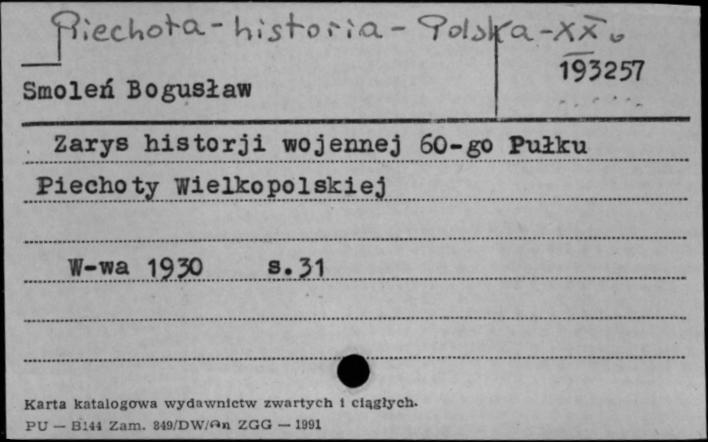 Piechota - historia - Polska - XX w
193257
Smoleń Bogusław
Zarys historji wojennej 60-go Pułku
Piechoty Wielkopolskiej
W-wa 1930 s.31
Karta katalogowa wydawnictw zwartych i ciągłych.
PU — B144 Zam. 849/DW/ ZGG — 1991